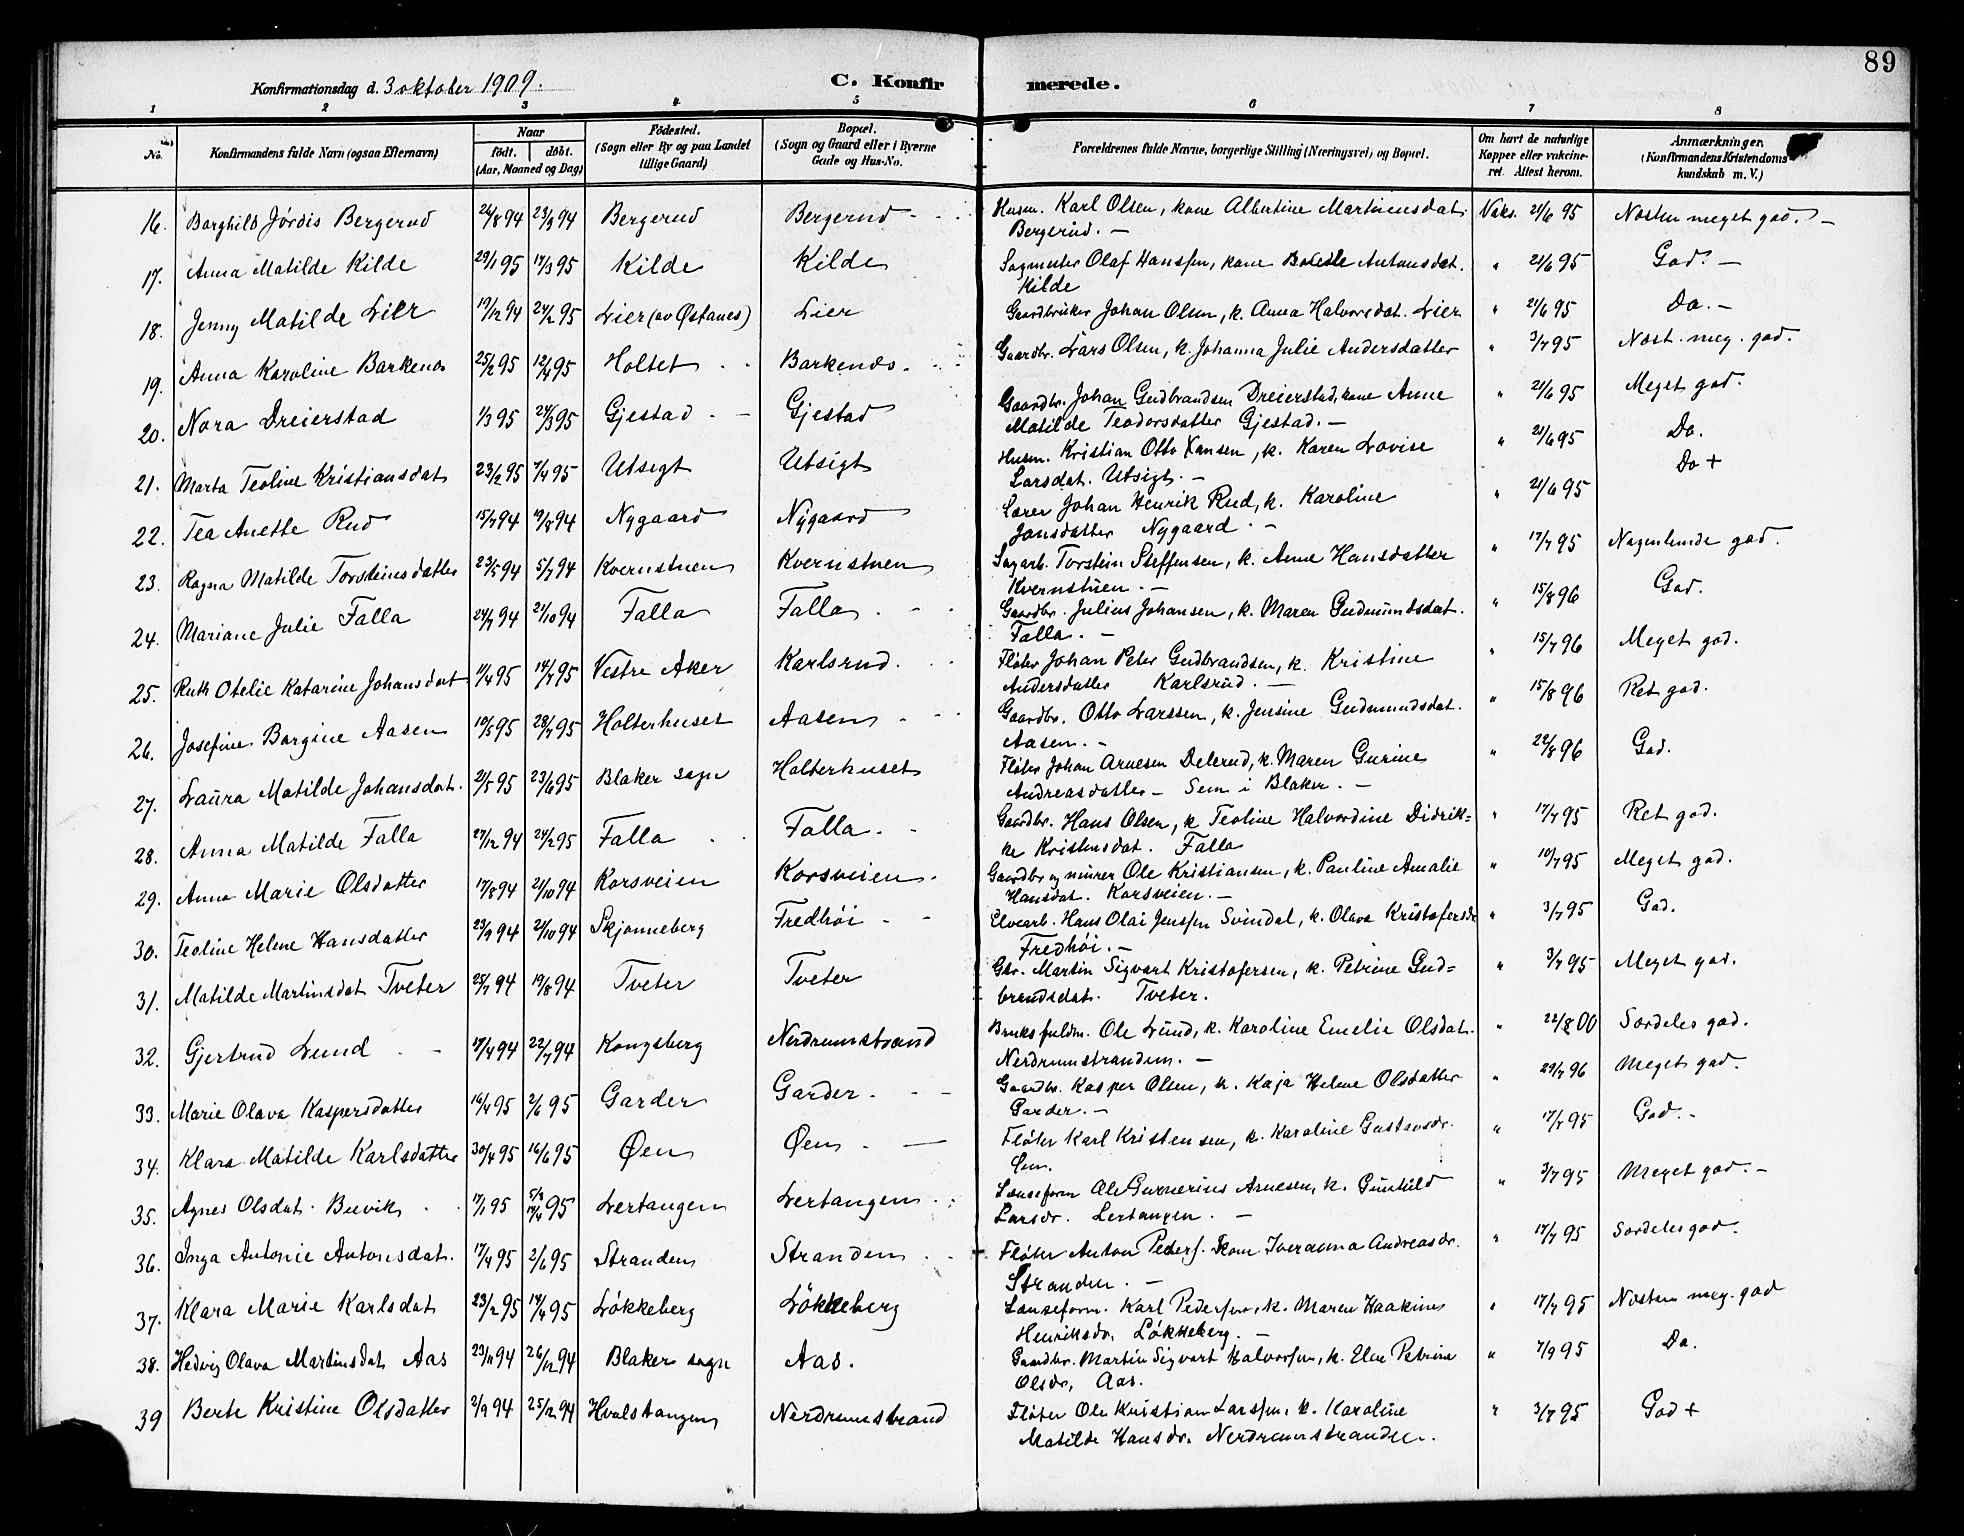 89
Konfirmationsdag d. 3 oktober 1909.
C. Konfir merede.
1 2 3 4 5 6 7 8
No. Konfirmandens fulde Navn (ogsaa Efternavn) Naar født. døbt. (Aar, Maaned og Dag) Födested. (Sogn eller By og paa Landet tillige Gaard) Bopæl. (Sogn og Gaard eller i Byerne Gade og Hus-No. Forældrenes fulde Navne, borgerlige Stilling (Næringsvei) og Bopæl. Om havt de naturlige Kopper eller vakcineret. Attest herom. Anmærkninger. (Konfirmandens Kristendomskundskab m. V.)
16. Borghild Jórdis Bergerud 26/8 94 23/9 94 Bergerud Bergerud Husm. Karl Olsen, kone Albertine Martinensdat. Vaks. 21/6 95 Næsten meget god. —
Bergerud. —
17. Anna Matilde Kilde 29/1 95 17/3 95 Kilde Kilde Sagmester Olaf Hanssen, kone Bolette Antonsdat. " 21/6 95 God. —
Kilde
18. Jenny Matilde Lier 19/12 94 24/2 95 Lier (av Østanes) Lier Gaardbruker Johan Olsen, k. Anna Halvorsdat. Lier " 21/6 95 Do. —
19. Anna Karoline Barkenes 25/2 95 12/4 95 Holtet Barkenes. Gaardbr. Lars Olsen, k. Johanna Julie Andersdatter " 3/7 95 Næst. meg. god.
20. Nora Dreierstad 1/3 95 24/3 95 Gjestad Gjestad Gaardbr. Johan Gudbrandsen Dreierstad, kone Anne " 21/6 95 Meget god.
Matilde Teodorsdatter Gjestad. —
21. Marta Teoline Kristiansdat 23/2 95 7/4 95 Utsigt Utsigt Husm. Kristian Otto Hansen, k. Karen Lovise " 21/6 95 Do.
Larsdat. Utsigt. —
22. Tea Anette Rud 15/7 94 19/8 94 Nygaard Nygaard Lærer Johan Henrik Rud, k. Karoline " 21/6 95 Do +
Jonsdatter Nygaard. —
23. Ragna Matilde Torsteinsdatter 23/5 94 5/7 94 Kvernstuen Kvernstuen Sagarb. Torstein Steffensen, k. Anne Hansdatter " 17/7 95 Nogenlunde god.
Kvernstuen. —
24. Mariane Julie Falla 24/7 94 21/10 94 Falla Falla Gaardbr. Julius Johansen, k. Maren Gudmundsdat. " 15/8 96 God.
Falla. —
25. Ruth Otelie Katarine Johansdat 11/4 95 14/7 95 Vestre Aker Karlsrud. Fløter Johan Peter Gudbrandsen, k. Kristine " 15/7 96 Meget god.
Andersdatter Karlsrud. —
26. Josefine Borgine Aasen 10/5 95 28/7 95 Holterhuset Aasen Gaardbr. Otto Larssen, k. Jensine Gudmundsdat. " 15/8 96 Ret god.
Aasen. —
27. Laura Matilde Johansdat. 21/5 95 23/6 95 Blaker sogn Holterhuset Fløter Johan Arnesen Delerud, k. Maren Gurine " 22/8 96 God.
Andreasdatter — Sem i Blaker. —
28. Anna Matilde Falla 27/12 94 24/2 95 Falla Falla Gaardbr. Hans Olsen, k. Teoline Halvordine Didrik= " 17/7 95 Ret god.
ke Kristensdat. Falla
29. Anna Marie Olsdatter 17/8 94 21/10 94 Korsveien Korsveien. Gaardbr og murer Ole Kristiansen, k. Pauline Amalie " 10/7 95 Meget god.
Hansdat. Korsveien. —
30. Teoline Helene Hansdatter 23/9 94 21/10 94 Skjønneberg Fredhöi Elvearb. Hans Olai Jenssen Svindal, k. Olava Kristofersdr " 3/7 95 God.
Fredhöi. —
31. Matilde Martinsdat Tveter 25/7 94 19/8 94 Tveter Tveter Gbr. Martin Sigvart Kristofersen, k. Petrine Gud= " 3/7 95 Meget god.
brandsdat. Tveter.
32. Gjertrud Lund 17/4 94 22/7 94 Kongsberg Nerdrumstrand Bruksfuldm. Ole Lund, k. Karoline Emelie Olsdat. " 22/8 00 Særdeles god.
Nerdrumstranden. —
33. Marie Olava Kaspersdatter 16/4 95 2/6 95 Garder Garder. Gaardbr. Kasper Olsen, k. Kaja Helene Olsdatter " 29/7 96 Meget god.
Garder. —
34. Klara Matilde Karlsdatter 30/4 95 16/6 95 Øen Øen Fløter Karl Kristensen, k. Karoline Gustavsdr. " 17/7 95 God. —
Øen.
35. Agnes Olsdat. Buvik 17/1 95 5/3 14/4 95 Lertangen Lertangen Lænseform Ole Gunnerius Arnesen, k. Gunhild " 3/7 95 Meget god. —
Larsdr. Lertangen. —
36. Inga Antonie Antonsdat. 17/4 95 2/6 95 Stranden Stranden Fløter Anton Peders. kone Iveranna Andreasdr. " 17/7 95 Særdeles god.
Stranden. —
37. Klara Marie Karlsdat 23/2 95 14/4 95 Løkkeberg Løkkeberg Lænseform. Karl Pedersen, k. Maren Haakine " 17/7 95 Næsten meg. god
Henriksdr. Løkkeberg. —
38. Hedvig Olava Martinsdat Aas 23/11 94 26/12 94 Blaker sogn Aas. Gaardbr. Martin Sigvart Halvorsen, k. Elen Petrine " 7/9 95 Do.
Olsdr, Aas.
39 Berte Kristine Olsdatter 2/9 94 25/12 94 Hvalstangen Nerdrumstrand Fløter Ole Kristian Larssen, k. Karoline " 3/7 95 God +
Matilde Hansdr. Nerdrumstranden.